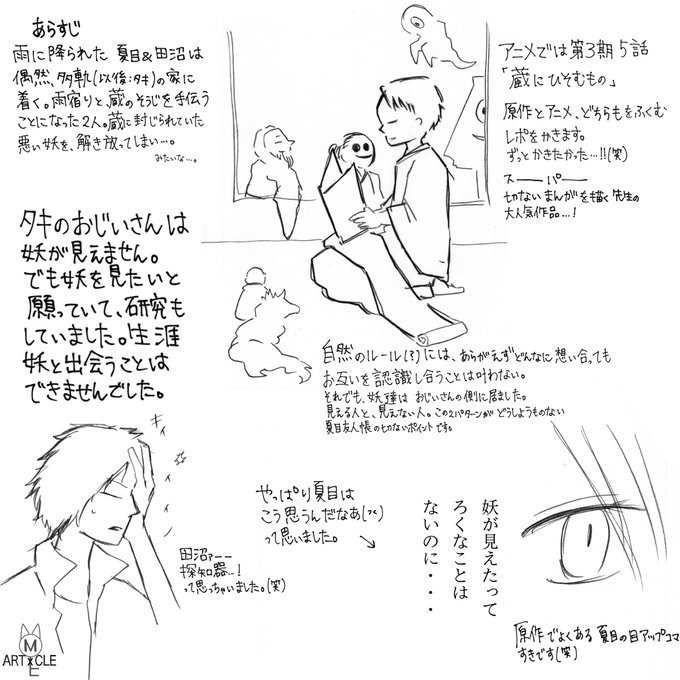 あらすじ
雨に降られた 夏目&田沼は
偶然、多軌(以後:タキ)の家に
着く。雨宿りと、蔵のそうじを手伝う
ことになった2人。蔵に封じられていた
悪い妖を、解き放ってしまい…。
みたいな…。
アニメでは第3期5話
「蔵にひそむもの」
原作とアニメ、どちらもをふくむ
レポをかきます。
ずっとかきたかった…!!(笑)
スーーパーー
切ないまんがを描く先生の
大人気作品…!
タキのおじいさんは
妖が見えません。
でも妖を見たいと
願っていて、研究も
していました。生涯
妖と出会うことは
できませんでした。
自然のルール(?)には、あらがえずどんなに想い合っても
お互いを認識し合うことは叶わない。
それでも、妖達は おじいさんの側に居ました。
見える人と、見えない人。この2パターンが どうしようものない
夏目友人帳の切ないポイントです。
キィ
ィ
ィ
田沼ァーー
探知器…!
って思っちゃいました。(笑)
やっぱり夏目は
こう思うんだなあ
って思いました。
妖が見えたって
ろくなことは
ないのに・・・
原作でよくある 夏目の目アップコマ
すきです(笑)
M
ARTCLE
E